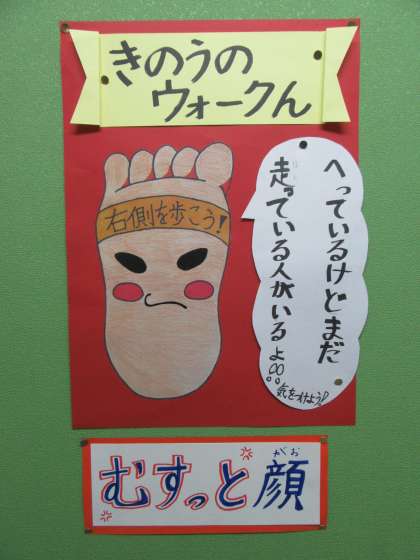 きのうの
ウォークん
右側を歩こう!
へっているけどまだ
走っている人がいるよ。。
気をつけよう!
むすっと顔
がお